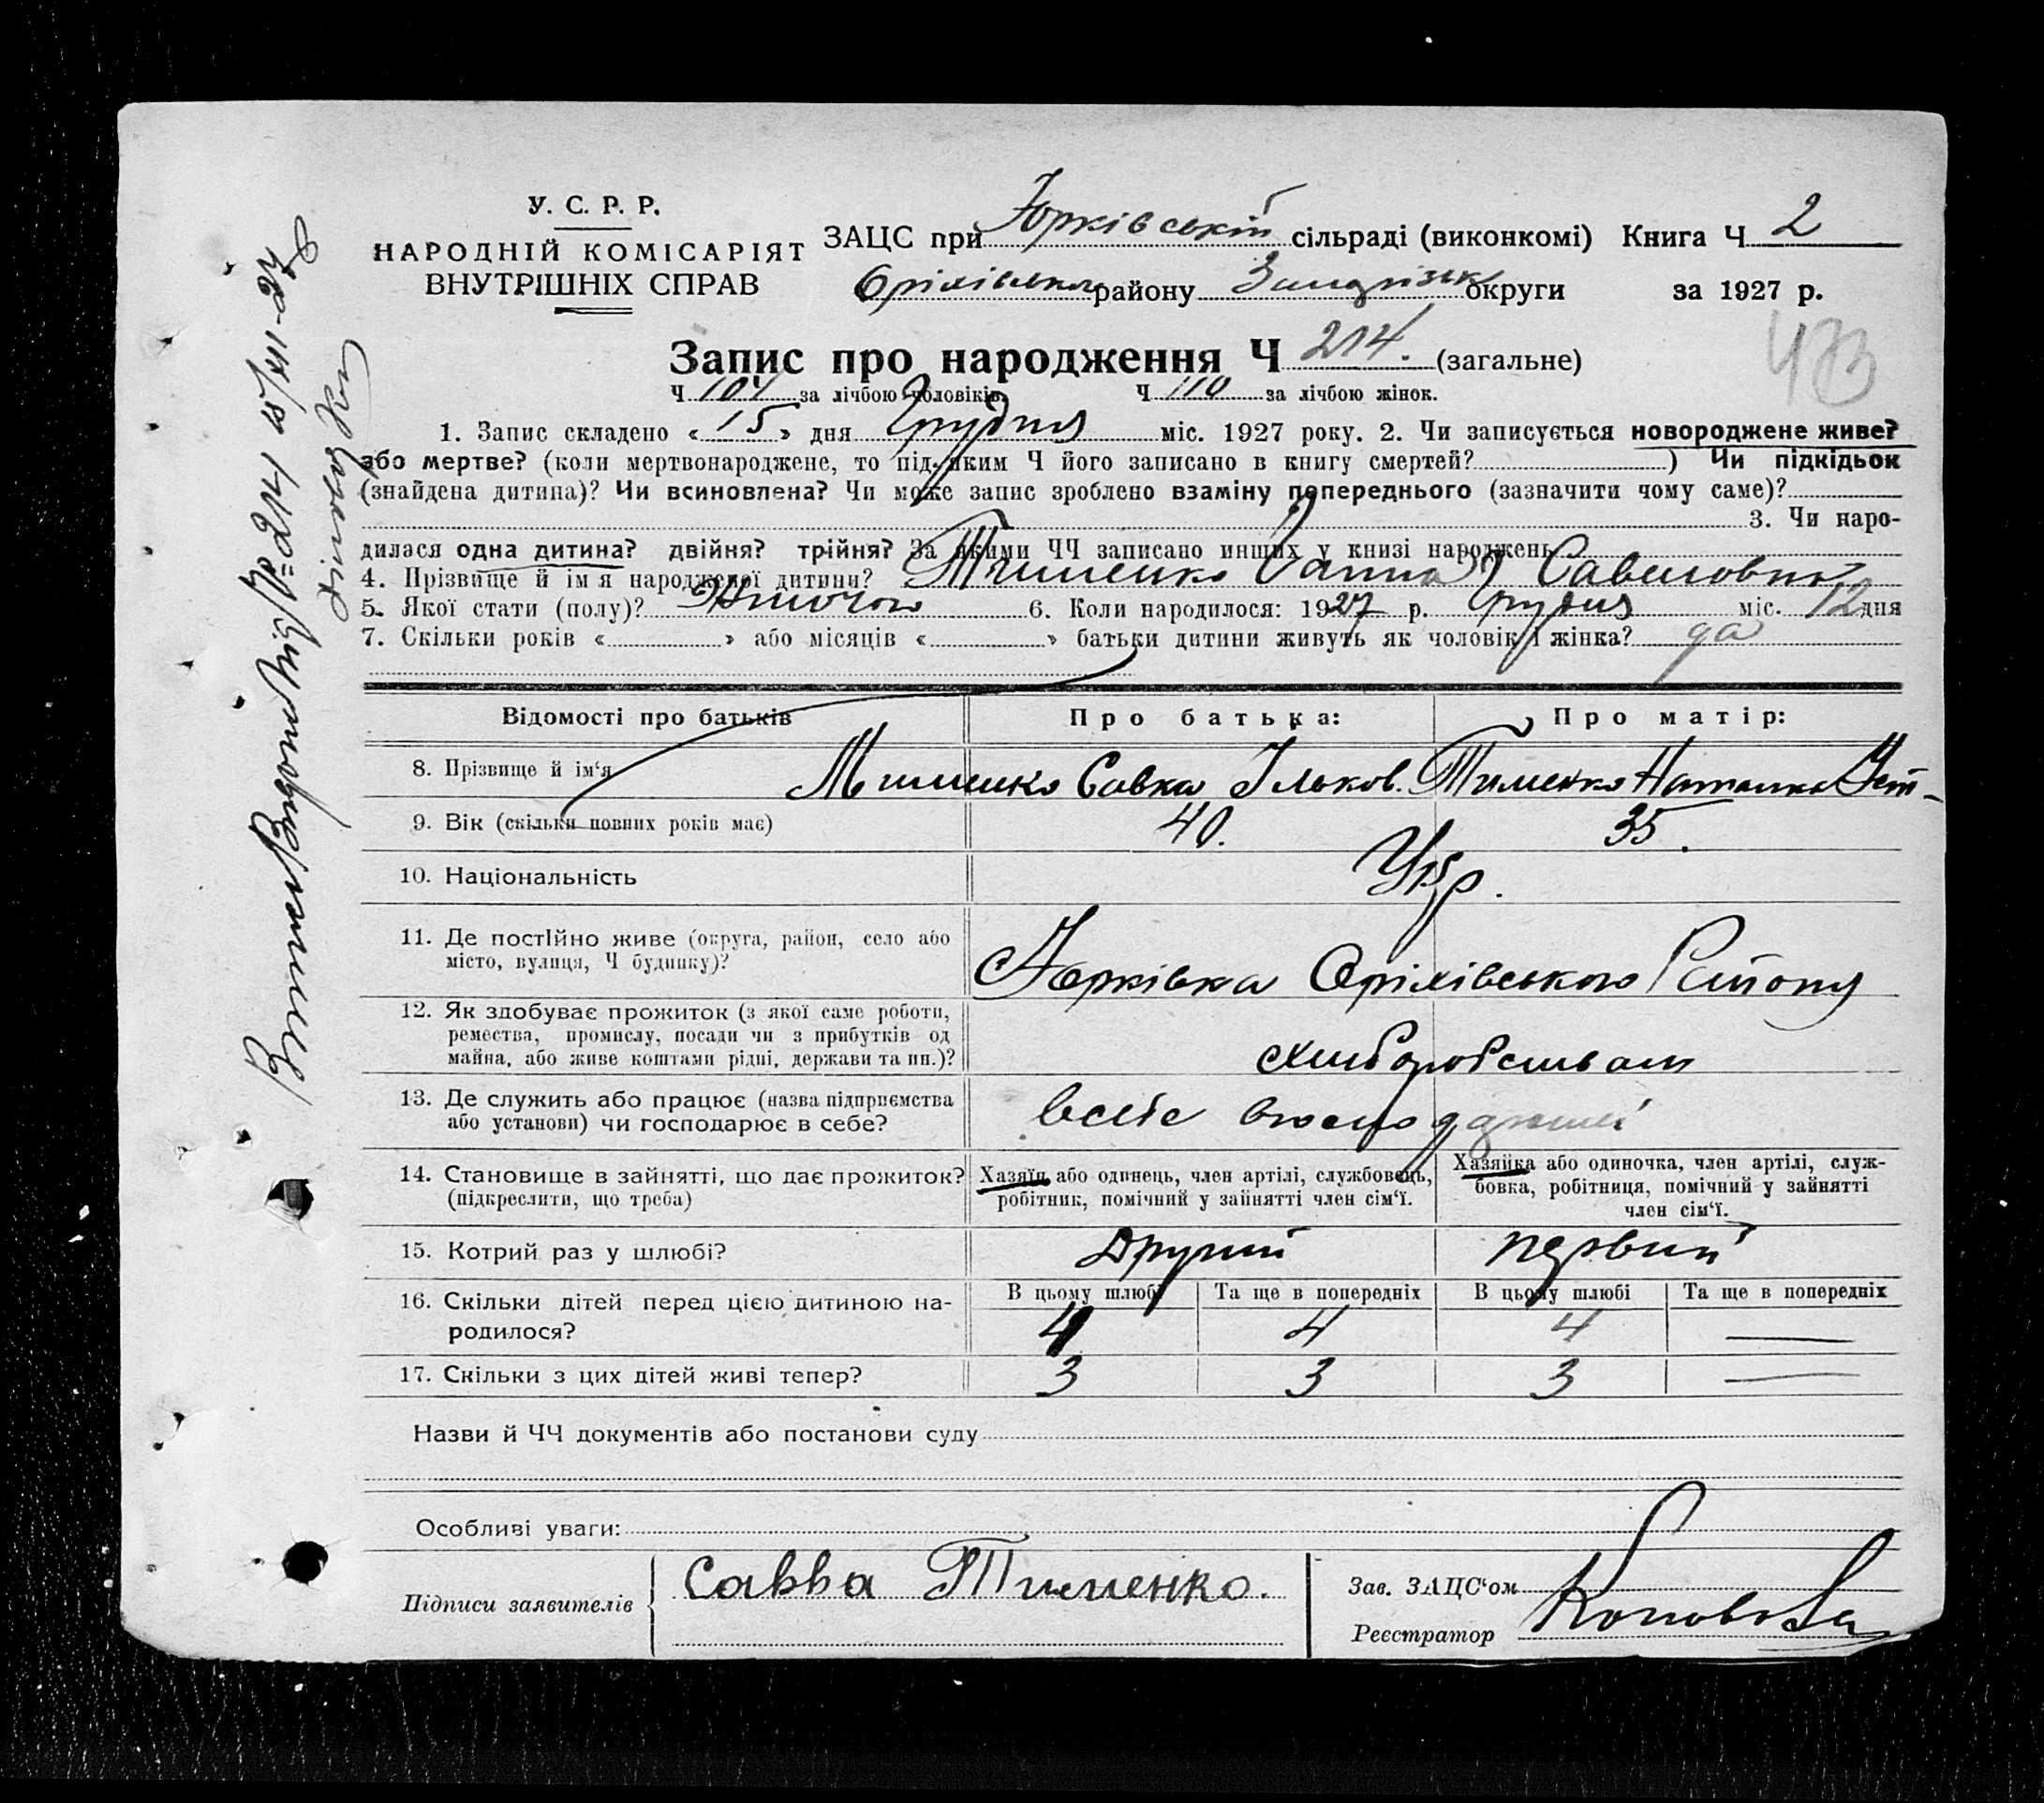 У. С. Р. Р.
НАРОДНІЙ КОМІСАРІЯТ
ВНУТРІШНІХ СПРАВ
ЗАЦС при Юрківській сільраді (виконкомі) Книга Ч 2
Оріхівськ району Запорізьк округи за 1927 р.
473
Запис про народження Ч 214. (загальне)
Ч 104 за лічбою чоловіків. Ч 110 за лічбою жінок.
1. Запис складено « 15 » дня Грудня міс. 1927 року. 2. Чи записується новороджене живе?
або мертве? (коли мертвонароджене, то під яким Ч його записано в книгу смертей? ) Чи підкідьок
(знайдена дитина)? Чи всиновлена? Чи може запис зроблено взаміну попереднього (зазначити чому саме)?
3. Чи наро-
дилася одна дитина? двійня? трійня? За якими ЧЧ записано инших у книзі народжень
4. Прізвище й ім'я народженої дитини? Тименко Ганна Савеловна
5. Якої стати (полу)? Жіночої 6. Коли народилося: 1927 р. Грудня міс. 12 дня
7. Скільки років « » або місяців « » батьки дитини живуть як чоловік і жінка? да
Відомості про батьків Про батька: Про матір:
8. Прізвище й ім'я Тименко Савка Ільков. Тименко Наталка Уст-
9. Вік (скільки повних років має) 40. 35.
10. Національність Укр.
11. Де постійно живе (округа, район, село або
місто, вулиця, Ч будинку)? Юрківка Оріхівського Району
12. Як здобуває прожиток (з якої саме роботи,
ремества, промислу, посади чи з прибутків од
майна, або живе коштами рідні, держави та ин.)? хліборобством
13. Де служить або працює (назва підприємства
або установи) чи господарює в себе? всебе в господарстві
14. Становище в зайнятті, що дає прожиток?
(підкреслити, що треба)
Хазяїн або одинець, член артілі, службовець,
робітник, помічний у зайнятті член сім'ї.
Хазяйка або одиночка, член артілі, служ-
бовка, робітниця, помічний у зайнятті
член сім'ї.
15. Котрий раз у шлюбі? Другий первий
В цьому шлюбі Та ще в попередніх В цьому шлюбі Та ще в попередніх
16. Скільки дітей перед цією дитиною на-
родилося? 4 4 4 —
17. Скільки з цих дітей живі тепер? 3 3 3 —
Назви й ЧЧ документів або постанови суду
Особливі уваги:
Підписи заявителів Савва Тименко.
Зав. ЗАЦС'ом
Реєстратор